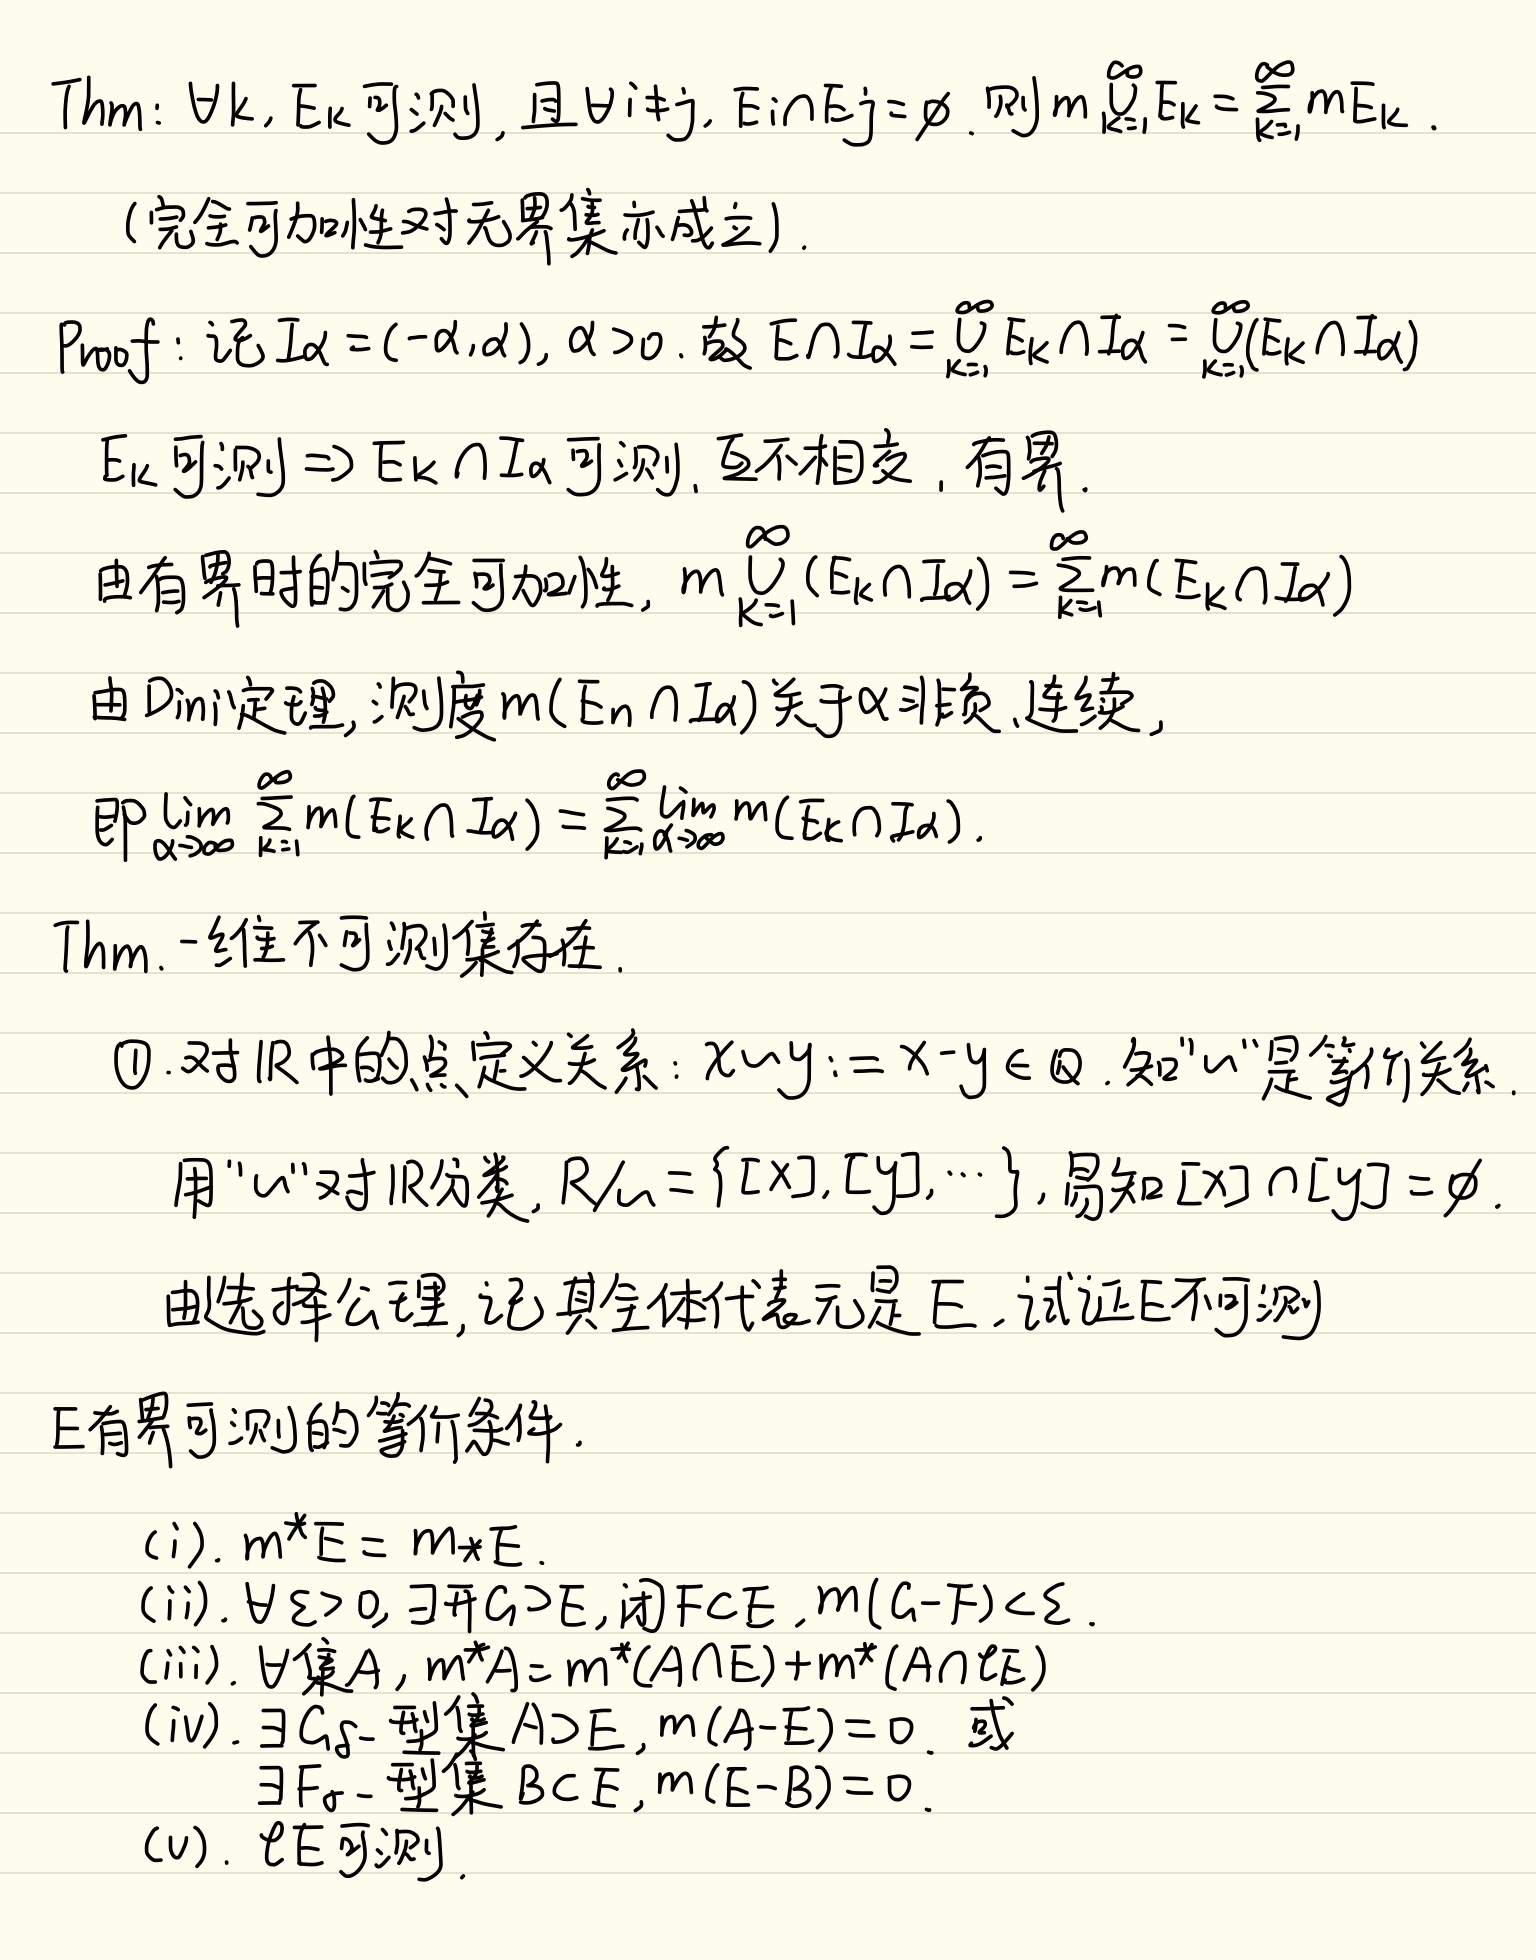 Thm: ∀k, Ek 可测, 且∀i≠j, Ei∩Ej=∅. 则 m ∞∪k=1 Ek = ∞∑k=1 mEk.
(完全可加性对无界集亦成立).
Proof: 记 Iα=(-α,α), α>0. 故 E∩Iα = ∞∪k=1 Ek∩Iα = ∞∪k=1(Ek∩Iα)
Ek 可测 ⇒ Ek∩Iα 可测, 互不相交, 有界.
由有界时的完全可加性, m ∞∪k=1 (Ek∩Iα) = ∞∑k=1 m(Ek∩Iα)
由Dini定理, 测度m(En∩Iα)关于α非负、连续,
即 lim α→∞ ∞∑k=1 m(Ek∩Iα) = ∞∑k=1 lim α→∞ m(Ek∩Iα).
Thm. 一维不可测集存在.
①. 对ℝ中的点定义关系: x~y := x-y∈ℚ. 知"~"是等价关系.
用"~"对ℝ分类, R/~ = {[x], [y], ⋯}, 易知 [x]∩[y]=∅.
由选择公理, 记其全体代表元是E. 试证E不可测
E有界可测的等价条件.
(i). m*E = m*E.
(ii). ∀ε>0, ∃开G⊃E, 闭F⊂E, m(G-F)<ε.
(iii). ∀集A, m*A=m*(A∩E)+m*(A∩𝒞E)
(iv). ∃Gδ-型集 A⊃E, m(A-E)=0. 或
∃Fσ-型集 B⊂E, m(E-B)=0.
(v). 𝒞E可测.